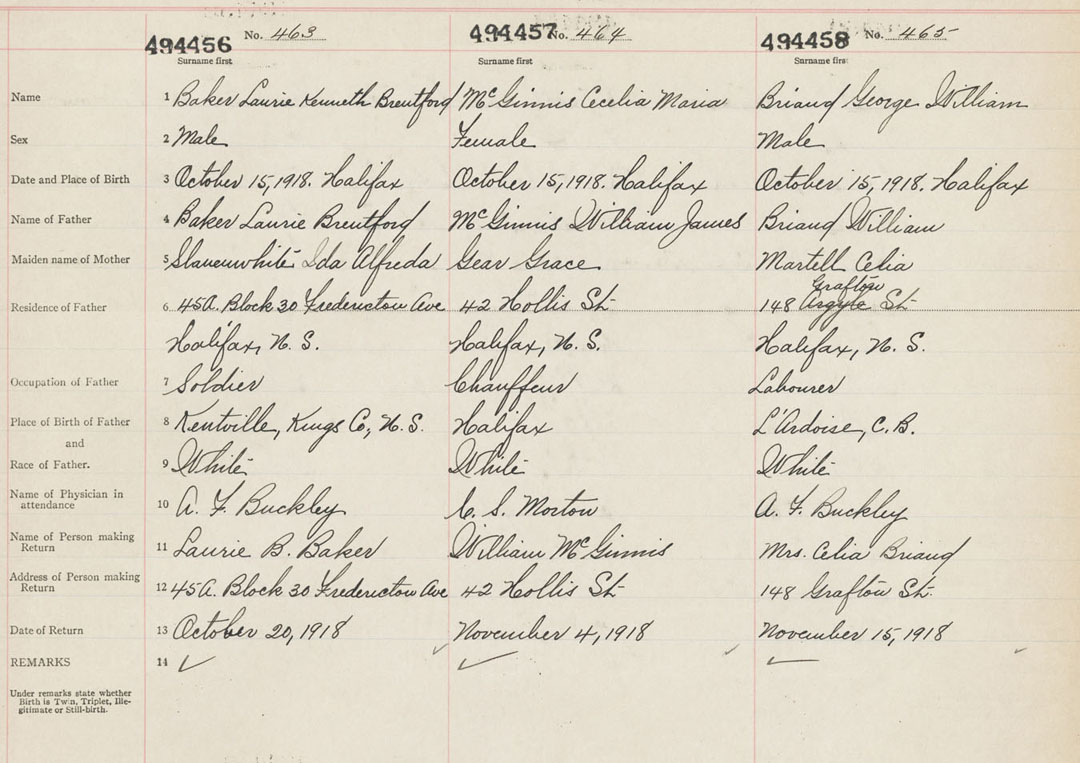 494456 No. 463 494457 No. 464 494458 No. 465
Surname first Surname first Surname first
Name 1 Baker Laurie Kenneth Brentford McGinnis Cecelia Maria Briand George William
Sex 2 Male Female Male
Date and Place of Birth 3 October 15, 1918. Halifax October 15, 1918. Halifax October 15, 1918. Halifax
Name of Father 4 Baker Laurie Brentford McGinnis William James Briand William
Maiden name of Mother 5 Slauenwhite Ida Alfreda Gear Grace Martell Celia
Grafton
Residence of Father 6 45A. Block 30 Fredericton Ave 42 Hollis St 148 Argyle St
Halifax, N. S. Halifax, N. S. Halifax, N. S.
Occupation of Father 7 Soldier Chauffeur Labourer
Place of Birth of Father 8 Kentville, Kings Co, N. S. Halifax L'Ardoise, C. B.
and
Race of Father. 9 White White White
Name of Physician in
attendance 10 A. F. Buckley C. S. Morton A. F. Buckley
Name of Person making
Return 11 Laurie B. Baker William McGinnis Mrs. Celia Briand
Address of Person making
Return 12 45A. Block 30 Fredericton Ave 42 Hollis St 148 Grafton St.
Date of Return 13 October 20, 1918 November 4, 1918 November 15, 1918
REMARKS 14
Under remarks state whether
Birth is Twin, Triplet, Ille-
gitimate or Still-birth.